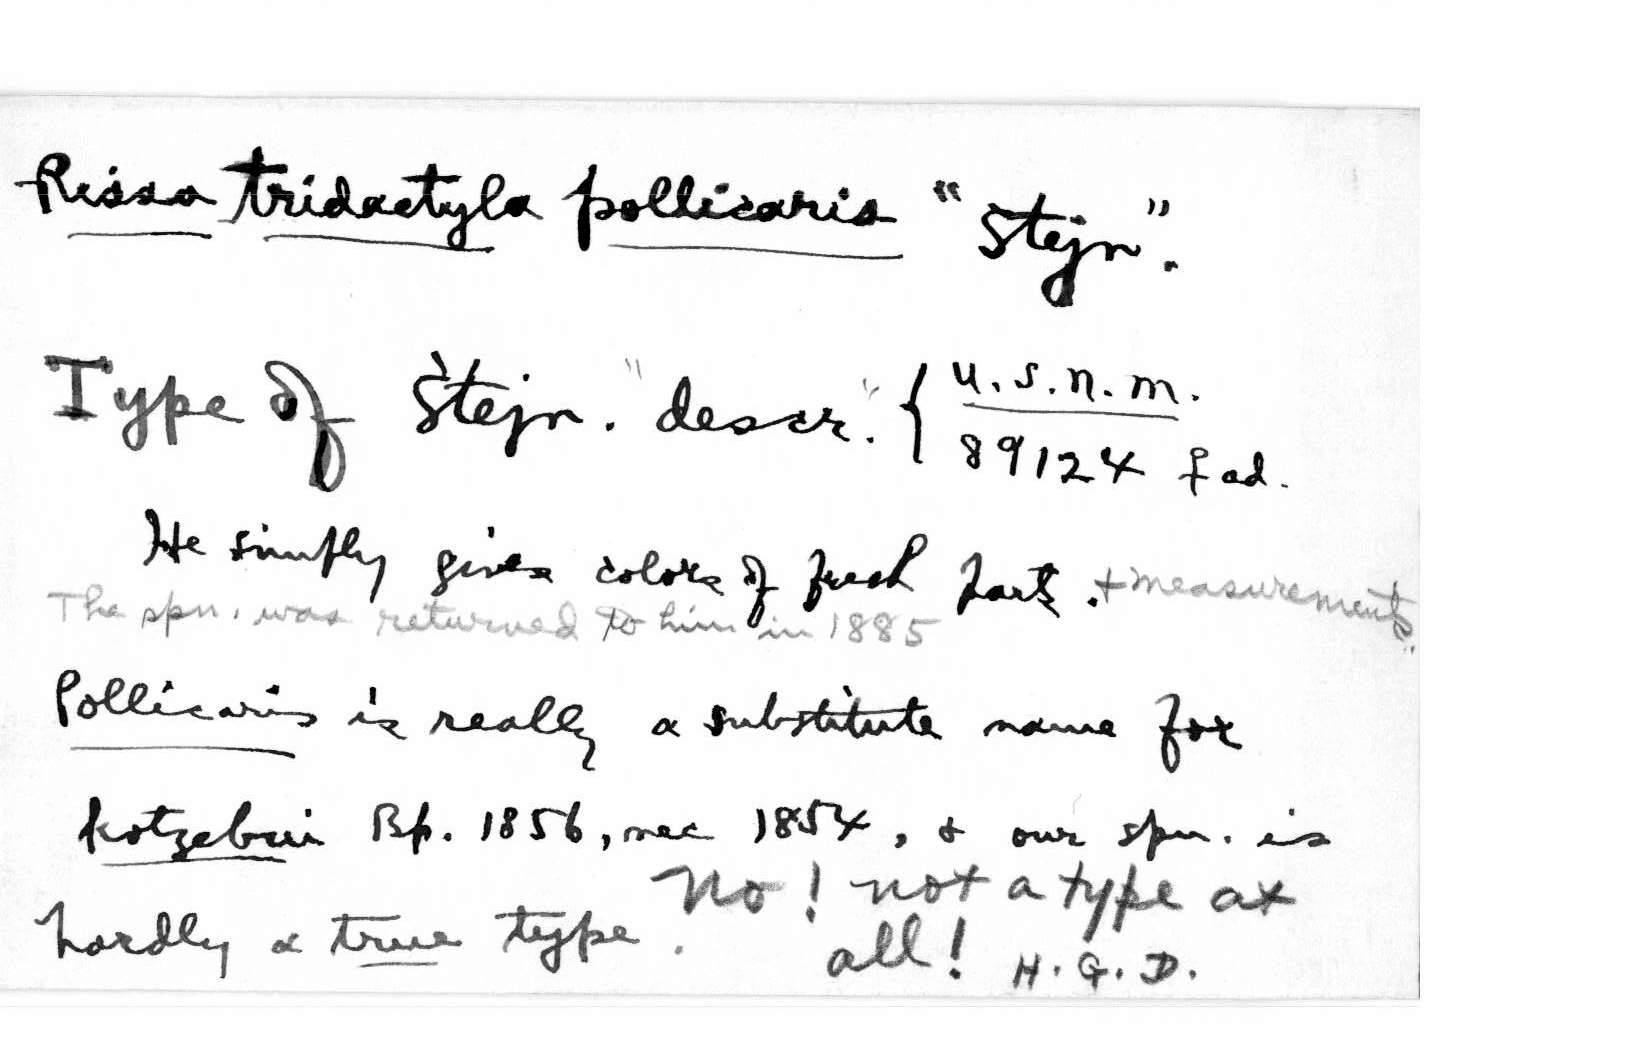 Rissa tridactyla pollicaris "Stejn".
Type of Stejn. "descr." { U.S.N.M.
89124 ♀ ad.
He simply gives colors of fresh parts. + measurements.
The spn. was returned to him in 1885
Pollicaris is really a substitute name for
kotzebui Bp. 1856, nec 1854, & our spn. is
hardly a true type. No! not a type at
all! H.G.D.